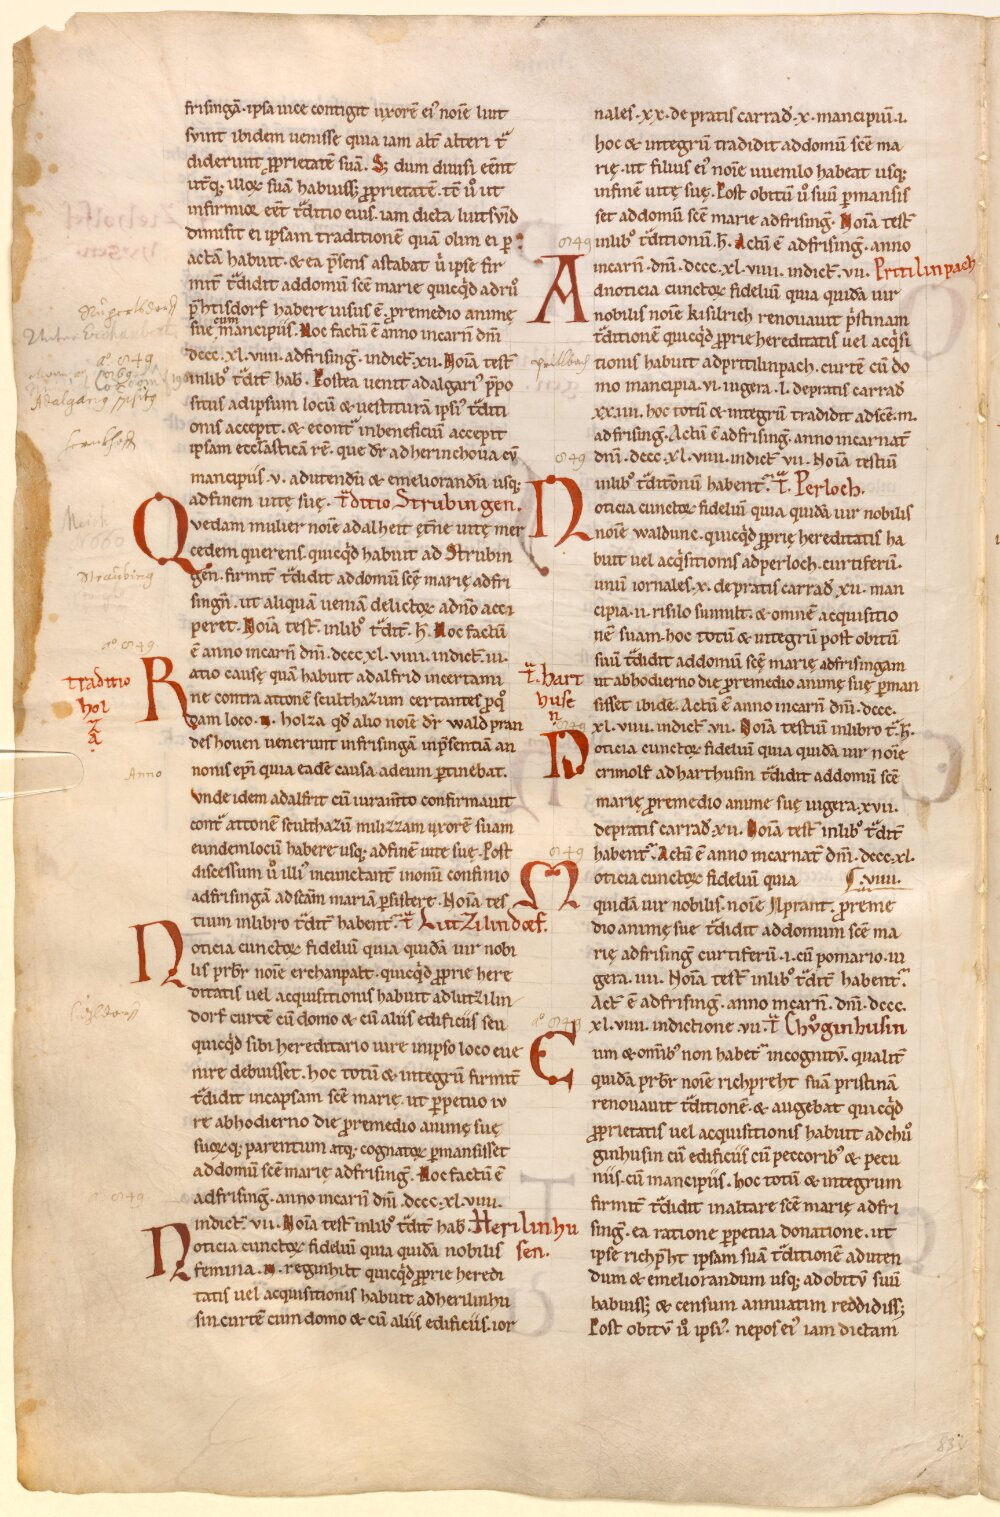 frisingā · ipsa uice contigit uxorē ei᾽ noīe luit
svint ibidem uenisse quia iam alt̄ alteri t͛
diderunt ꝓprietatē suā. S; dum diuisi eēnt
utᷓq; illoꝝ suā habuiss; ꝓprietatē. tē u̇ ut
infirmioꝝ eēt t͛ditio eius. iam dicta luitsvid
dimisit ei ipsam traditionē quā olim ei ꝑ
actā habuit · & ea p̄sens astabat u̇ ipse fir
mit̄ t͛didit addomū scē marie quicq̇d adrů
p̄htisdorf habere uisus ē ꝓremedio animę
suę cum mancipiis. Hoc factū ē anno incarn̄ dn̄i
dccc · xl · viiii · adfrising̅ · indict̄ · xii · Noīa test̄
inlib᾽ t͛dit̄ hab̄ . Postea uenit adalgari᾽ p̄po
situs adipsum locū & uestiturā ipsi᾽ t͛diti
onis accepit . & econt͛ inbeneficiū accepit
ipsam ecclasticā rē · que dr̄ adherinchoua cv̄
mancipiis · v · adutendū & emeliorandū usq;
adfinem uitę suę · t͛ditio Strubingen.
Quedam mulier noīe adalheit et̄nę uitę mer
cedem querens. quicq̇d habuit ad Strubin
gen · firmit̄ t͛didit addomū scę̄ marię adfri
singn̄ . ut aliquā ueniā delictoꝝ adn̄o acci
peret · Noīa test̄ · inlib᾽ t͛dit̄ · h̄ · Hoc factū
ē anno incarn̄ dn̄i · dccc · xl · viiii · indict̄ · iii ·
traditio
hol
z
a
Ratio causę quā habuit adalfrid incertami
ne contra attonē sculthazum certantes ꝓq̇
dam loco · n · holza qd̄ alio noīe dr̄ wald pran
deshouen uenerunt infrisingā inp̄sentiā an
nonis ep̄i quia eadē causa adeum ꝑtinebat.
Vnde idem adalfrit cū iuram̄to confirmauit
cont͛ attonē sculthazū milizzam uxorē suam
eundemlocū habere usq; adfinē uitę suę · Post
discessum u̇ illi᾽ incunctant̄ inomī confinio
adfrisingā adscām mariā ꝑsistere · Noīa tes
tium inlibro t͛dit̄ habent᾽ · t͛ Lutzilindorf.
Noticia cunctoꝝ fidelium quia quidā uir nobi
lis prb̄r noīe erchanpalt · quicq̇d ꝓprie here
ditatis uel acquisitionis habuit adlutzilin
dorf curtē cū domo & cū aliis edificiis seu
quicq̇d sibi hereditario iure inipso loco eue
nire debuisset. hoc totū & integrū firmit̄
t͛didit incapsam scē marię · ut ꝑpetuo iv
re abhodierno die ꝓremedio animę suę
suoꝝq; parentum atq; cognatoꝝ ꝑmansisset
addomū scē marię adfrising̅. Hoc factū ē
adfrising̅ · anno incarn̄ dn̄i dccc · xl · viiii.
indict̄ vii · Noīa test̄ inlib᾽ t͛dit̄ hab · Herilinhu
sen.
Noticia cunctoꝝ fidelium quia quidā nobilis
femina · n · reginhilt quicq̇d ꝓprie heredi
tatis uel acquisitionis habuit adherilinhu
sin curtē cum domo & cū aliis edificiis · ior
nales · xx · de pratis carrad̄ · x · mancipiū · i ·
hoc & integrū tradidit addomū scē ma
rię · ut filius ei᾽ noīe uuenilo habeat usq;
infinē uitę suę. Post obitū u̇ suū ꝑmansis
set addomū scē marie adfrising̅ · Noīa test̄
inlib᾽ t͛ditionū · h̄ · Actū ē adfrising̅ · anno
incarn̄ · dn̄i · dccc · xl · viiii · indict̄ · vii · Pritilinpach
Adnoticia cunctoꝝ fidelium quia quidā uir
nobilis noīe kisilrich renouauit p̄stinam
t͛ditionē quicq̇d ꝓprie hereditatis uel acq̇si
tionis habuit adpritilinpach · curtē cū do
mo mancipia · vi · iugera · l · depratis carrad̄
xxiiii · hoc totū & integrū tradidit adscē · m ·
adfrising̅ · Actū ē adfrising̅ · anno incarnat̄
dn̄i · dccc · xl · viiii · indict̄ vii · Noīa testiū
inlib᾽ t͛ditonū habent᾽ · t͛ · Perloch.
Noticia cunctoꝝ fidelium quia quidā uir nobilis
noīe waldunc · quicq̇d ꝓprię hereditatis ha
buit uel acq̇sitionis adperloch · curtiferū ·
unū iornales · x · depratis carrad̄ xv · man
cipia · ii · risilo sinnilt · & omnē acquisitio
nē suam · hoc totū & integrū post obitū
suū t͛didit addomū scę̄ marię adfrisingam
ut abhodierno die ꝓremedio animę suę ꝑman
sisset ibidē. Actū ē anno incarn̄ dn̄i · dccc ·
xl · viiii · indict̄ vii · Noīa testiū inlibro t͛ · h̄ ·
t͛ · hart
huse
n
Noticia cunctoꝝ fidelium quia quidā uir noīe
crimolf adharthusin t͛didit addomū scē
marię ꝓremedio anime suę iugera · xvii ·
depratis carrad̄ · xii · Noīa test̄ inlib᾽ t͛dit̄
habent᾽. Actū ē anno incarnat̄ dn̄i · dccc · xl ·
viiii.
Noticia cunctoꝝ fidelium quia
quidā uir nobilis · noīe Nprant · ꝓreme
dio animę sue t͛didit addomum scē ma
rię adfrising̅ curtiferū · i · cū pomario · iu
gera · iiii · Noīa test̄ inlib᾽ t͛dit̄ habent᾽.
Act̄ ē adfrising̅ · anno incarn̄ · dn̄i · dccc ·
xl · viiii · indictione · vii · t͛ Chůginhusin
Cum & omib᾽ non habet᾽ incognitv̄ · qualit̄
quidā prb̄r noīe richpreht suā pristinā
renouauit t͛ditionē · & augebat quicq̇d
ꝓprietatis uel acquisitionis habuit adchů
ginhusin cū edificiis cū peccorib᾽ & pecu
niis · cū mancipiis · hoc totū & integrum
firmit̄ t͛didit inaltare scē marię adfri
sing̅ · ea ratione ꝑpetua donatione · ut
ipse richp̄ht ipsam suā t͛ditionē aduten
dum & emeliorandum usq; ad obitv̄ suū
habuiss; & censum annuatim reddidiss;
Post obitv̄ u̇ ipsi᾽ · nepos ei᾽ iam dictam
Straubing
Anno
83